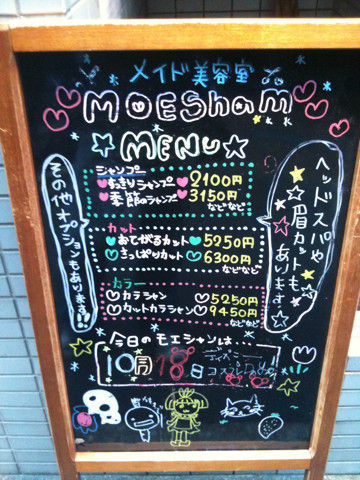 メイド美容室
MOESham
MENU
シャンプー
すっきりシャンプー 2100円
季節のシャンプー 3150円
などなど
カット
おてがるカット 5250円
さっぱりカット 6300円
などなど
カラー
カラシャン 5250円
カットカラシャン 9450円
などなど
その他オプションもあります!!
ヘッドスパや
眉カットも
あります
今日のモエシャンは、
10月18日